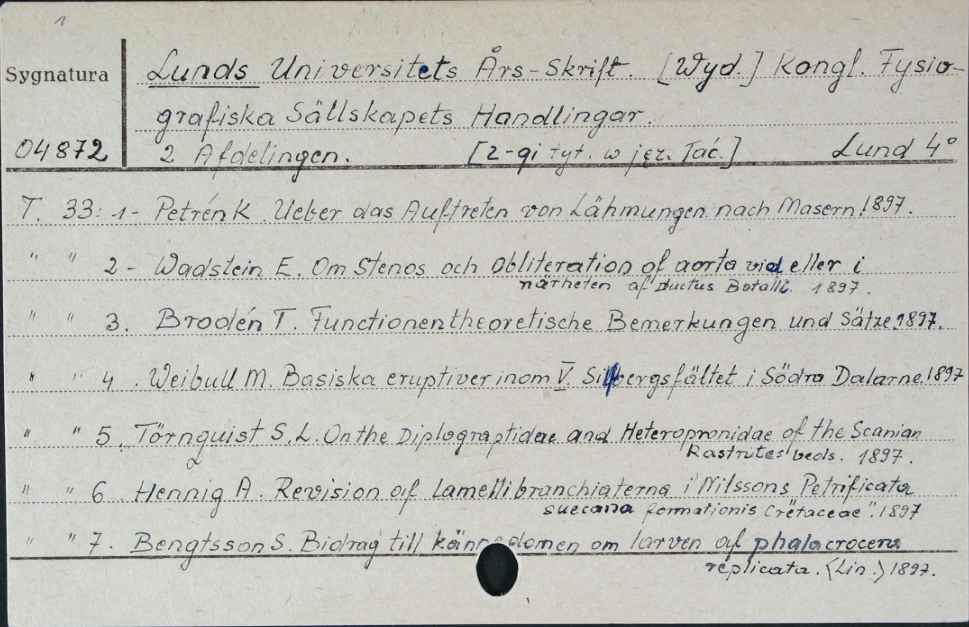 1
Sygnatura
Lunds Universitets Års-Skrift. [Wyd.] Kongl. Fysio-
grafiska Sällskapets Handlingar.
04872
2 Afdelingen. [z-qi tyt. w jęz. łac.] Lund 4°
T. 33: 1- Petrén K. Ueber das Auftreten von Lähmungen nach Masern. 1897.
" " 2- Wadstein E. Om Stenos och obliteration of aorta vid eller i
närheten af Ductus Botalli. 1897.
" " 3. Brodén T. Functionentheoretische Bemerkungen und Sätze. 1897.
" " 4. Weibull M. Basiska eruptiver inom V. Silfbergsfältet i Södra Dalarne. 1897
" " 5. Törnquist S.L. On the Diplograptidae and Heteropronidae of the Scanian
Rastrites beds. 1897.
" " 6. Hennig A. Revision af lamellibranchiaterna i "Nilssons Petrificata
suecana formationis Cretaceae". 1897
" " 7. Bengtsson S. Bidrag till kännedomen om larven af phalacrocera
replicata. (Lin.) 1897.